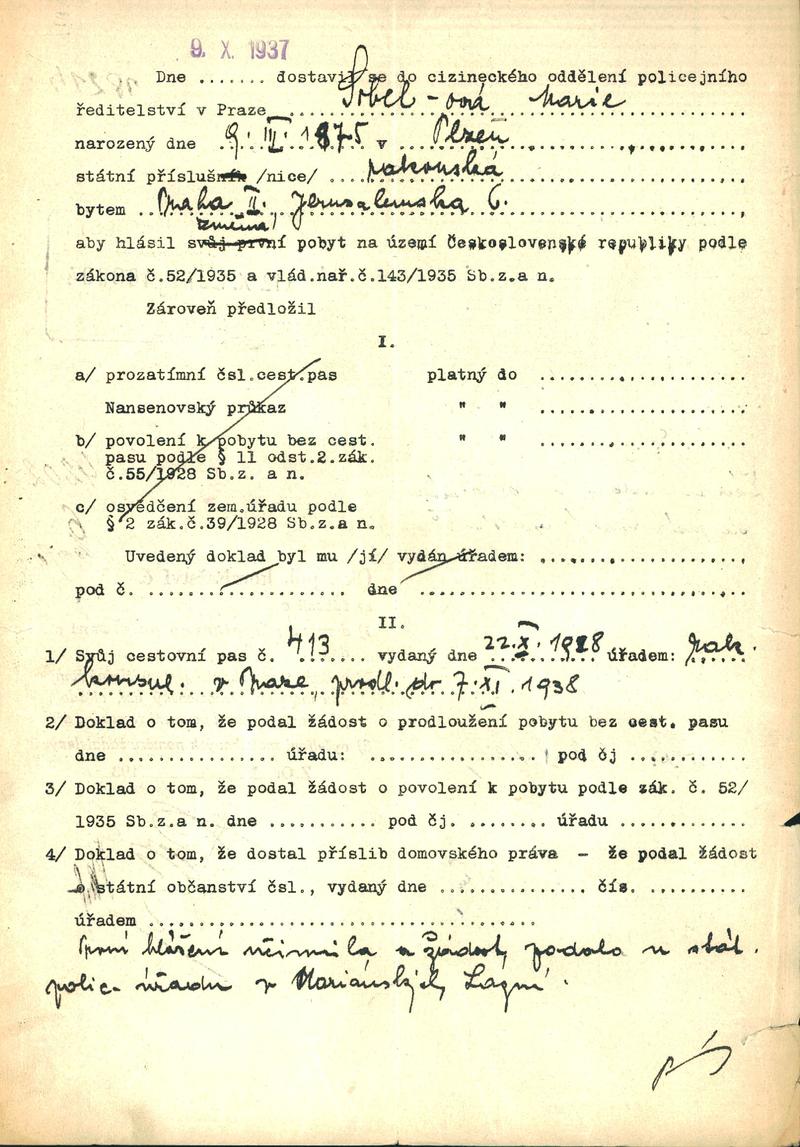 9. X. 1937
Dne ....... dostavil se do cizineckého oddělení policejního
ředitelství v Praze Sobel-ová Marie
narozený dne 9. III. 1875 v Plzeň
státní příslušník /nice/ rakouská
bytem Praha II., Jerusalemska 6.
změna
aby hlásil svůj první pobyt na území Československé republiky podle
zákona č.52/1935 a vlád.nař.č.143/1935 Sb.z.a n.
Zároveň předložil
I.
a/ prozatímní čsl.cest.pas platný do ....................
Nansenovský průkaz " " ....................
b/ povolení k pobytu bez cest. " " ....................
pasu podle § 11 odst.2.zák.
č.55/1928 Sb.z. a n.
c/ osvědčení zem.úřadu podle
§ 2 zák.č.39/1928 Sb.z.a n.
Uvedený doklad byl mu /jí/ vydán úřadem: ....................
pod č. .................... dne ..............................
II.
1/ Svůj cestovní pas č. 413 vydaný dne 22.X. 1928 úřadem: rak.
konsul. v Praze, prodl. do 7.XI. 1938
2/ Doklad o tom, že podal žádost o prodloužení pobytu bez cest. pasu
dne ................ úřadu: ................ pod čj ............
3/ Doklad o tom, že podal žádost o povolení k pobytu podle zák. č. 52/
1935 Sb.z.a n. dne ........... pod čj. ........ úřadu .............
4/ Doklad o tom, že dostal příslib domovského práva - že podal žádost
o státní občanství čsl., vydaný dne .............. čís. ..........
úřadem .......................................
První hlášení učinila a žádost podala u stát.
polic. úřadu v Mariánských Lázní.